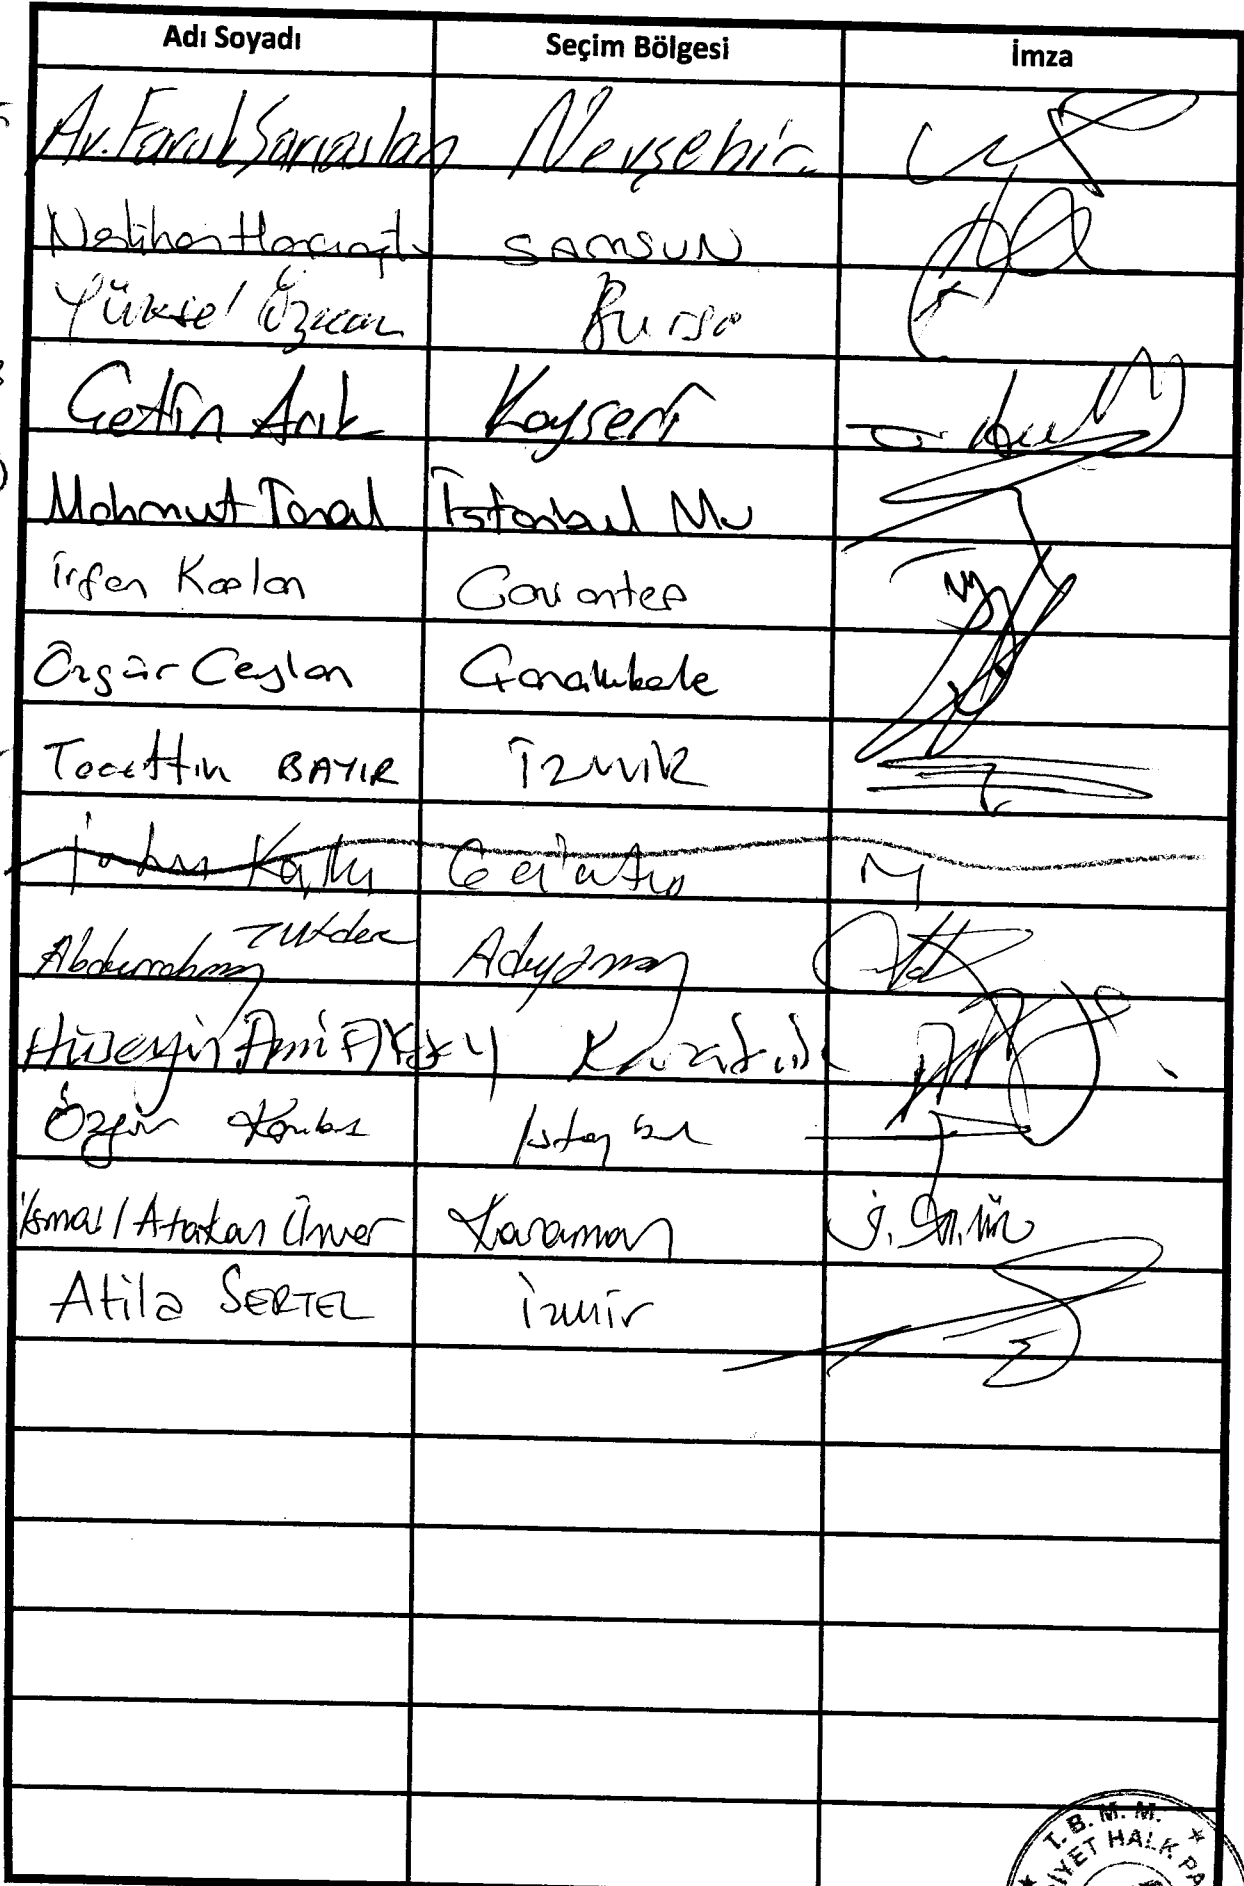 Adı Soyadı Seçim Bölgesi İmza
Av. Faruk Sarıaslan Nevşehir
Neslihan Hancıoğlu SAMSUN
Yüksel Özkan Bursa
Çetin Arık Kayseri
Mahmut Tanal İstanbul Mv
İrfan Kaplan Gaziantep
Özgür Ceylan Çanakkale
Tacettin BAYIR İZMİR
Abdurrahman Tutdere Adıyaman
Hüseyin Avni Aksoy Karabük
Özgür Karabat İstanbul
İsmail Atakan Ünver Karaman
Atila SERTEL İzmir
T.B.M.M.
İYET HALK PA